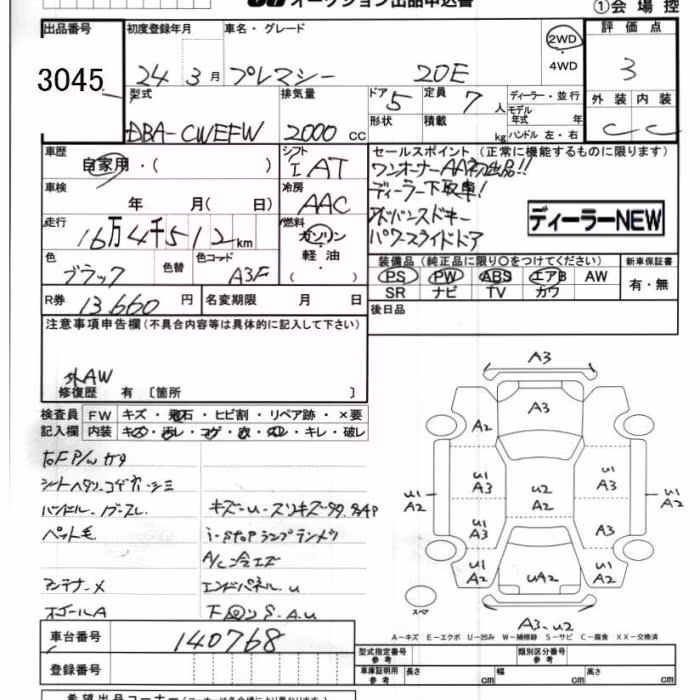 オークション出品申込書
①会場控
出品番号 初度登録年月 車名・グレード 2WD 評価点
3045 24 3月 プレマシー 20E ・4WD 3
型式 排気量 ドア 5 定員 7人 ディーラー・並行 外装 内装
DBA-CWEFW 2000cc 形状 積載 kg モデル年式 年 ハンドル 左・右 C C
車歴 シフト セールスポイント (正常に機能するものに限ります)
自家用・( ) I AT ワンオーナーAA初出品!!
車検 冷房 ディーラー下取車!
年 月( 日) AAC アドバンスドキー
走行 燃料 パワースライドドア
16万4千512km ガソリン・軽油 ( ) ディーラーNEW
色 色替 色コード 装備品 (純正品に限り〇をつけてください) 新車保証書
ブラック A3F PS PW ABS エアB AW 有・無
R券 13,660円 名変期限 月 日 SR ナビ TV カワ
注意事項申告欄(不具合内容等は具体的に記入して下さい) 後日品
外AW
修復歴 有 〔箇所 〕
検査員 FW キズ・飛石・ヒビ割・リペア跡・×要
記入欄 内装 キズ・汚レ・コゲ・穴・スレ・キレ・破レ
右F P/w カタ
シートヘタリ・コゲ穴・シミ
ハンドル.ノブスレ. キズ-u-スリキズ
ペット毛 i-stopランプテンメツ
A/C
アンテナ-X エンドパネル.u
ホゴールA
A3
A3
A2
u1 A3 u2 A2 u1 A3
u1 A2 u1 A2
u1 A3 A3
u1 A2 uA2 u1 A2
スペア
A3-u2
A-キズ E-エクボ U-凹み W-補修跡 S-サビ C-腐食 XX-交換済
車台番号 140768
型式指定番号 参考 類別区分番号 参考
登録番号
車庫証明用 参考 長さ cm 幅 cm 高さ cm
希望出品コーナー